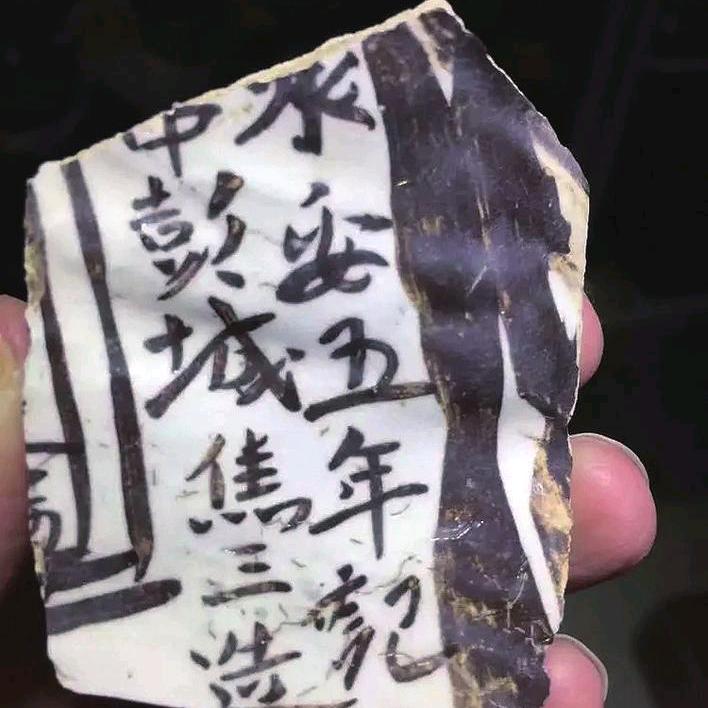 安五年記
中彭城焦三造